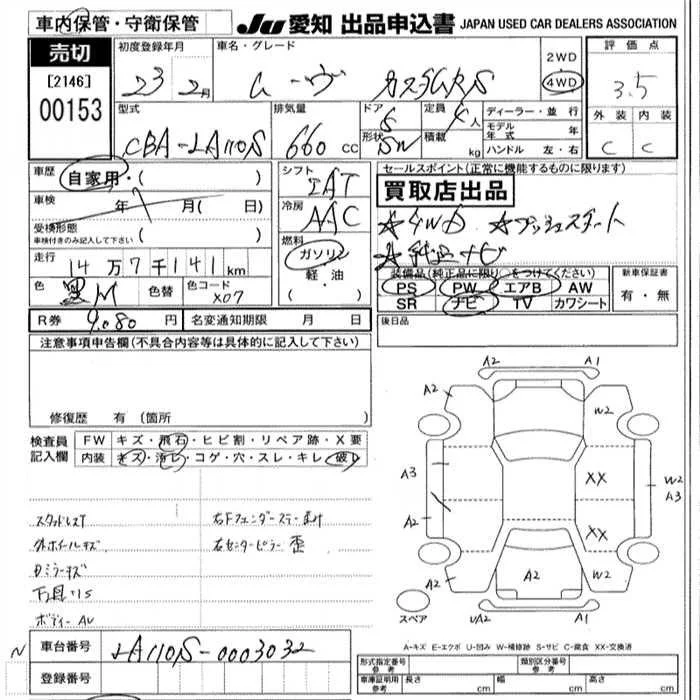 車内保管・守衛保管
JU 愛知 出品申込書 JAPAN USED CAR DEALERS ASSOCIATION
売切
[2146]
00153
初度登録年月
23 2月
車名・グレード
ムーヴ カスタムRS
2WD
4WD
評価点
3.5
外装 内装
C C
型式
CBA-LA110S
排気量
660 cc
ドア 5
形状 SW
定員 4人
積載 kg
ディーラー・並行
モデル年式 年
ハンドル 左・右
車歴 自家用・( )
車検 年 月( 日)
受検形態
車検付きのみ記入して下さい ( )
走行 14万7千141km
色 黒M 色替 色コード X07
シフト
IAT
冷房
AAC
燃料
ガソリン
軽油
( )
セールスポイント(正常に機能するものに限ります)
買取店出品
☆4WD ☆プッシュスタート
☆純正ナビ
装備品(純正品に限り○をつけてください)
PS PW エアB AW
SR ナビ TV カワシート
新車保証書
有・無
R券 9,080円 名変通知期限 月 日
後日品
注意事項申告欄(不具合内容等は具体的に記入して下さい)
修復歴 有(箇所
検査員記入欄
FW キズ・飛石・ヒビ割・リペア跡・X要
内装 キズ・汚レ・コゲ・穴・スレ・キレ・破レ
スタッドレスT
外ホイールキズ
Dミラーキズ
下廻りS
ボディーAU
右Fフェンダーステー曲り
右センターピラー歪
A2 A1
A2 W2
A3 XX W2 A3
A2 XX
A2 A2 W2
UA2 A1
スペア
A-キズ E-エクボ U-凹み W-補修跡 S-サビ C-腐食 XX-交換済
N
車台番号 LA110S-0003032
登録番号
形式指定番号 参考
類別区分番号 参考
車庫証明用 参考 長さ cm 幅 cm 高さ cm